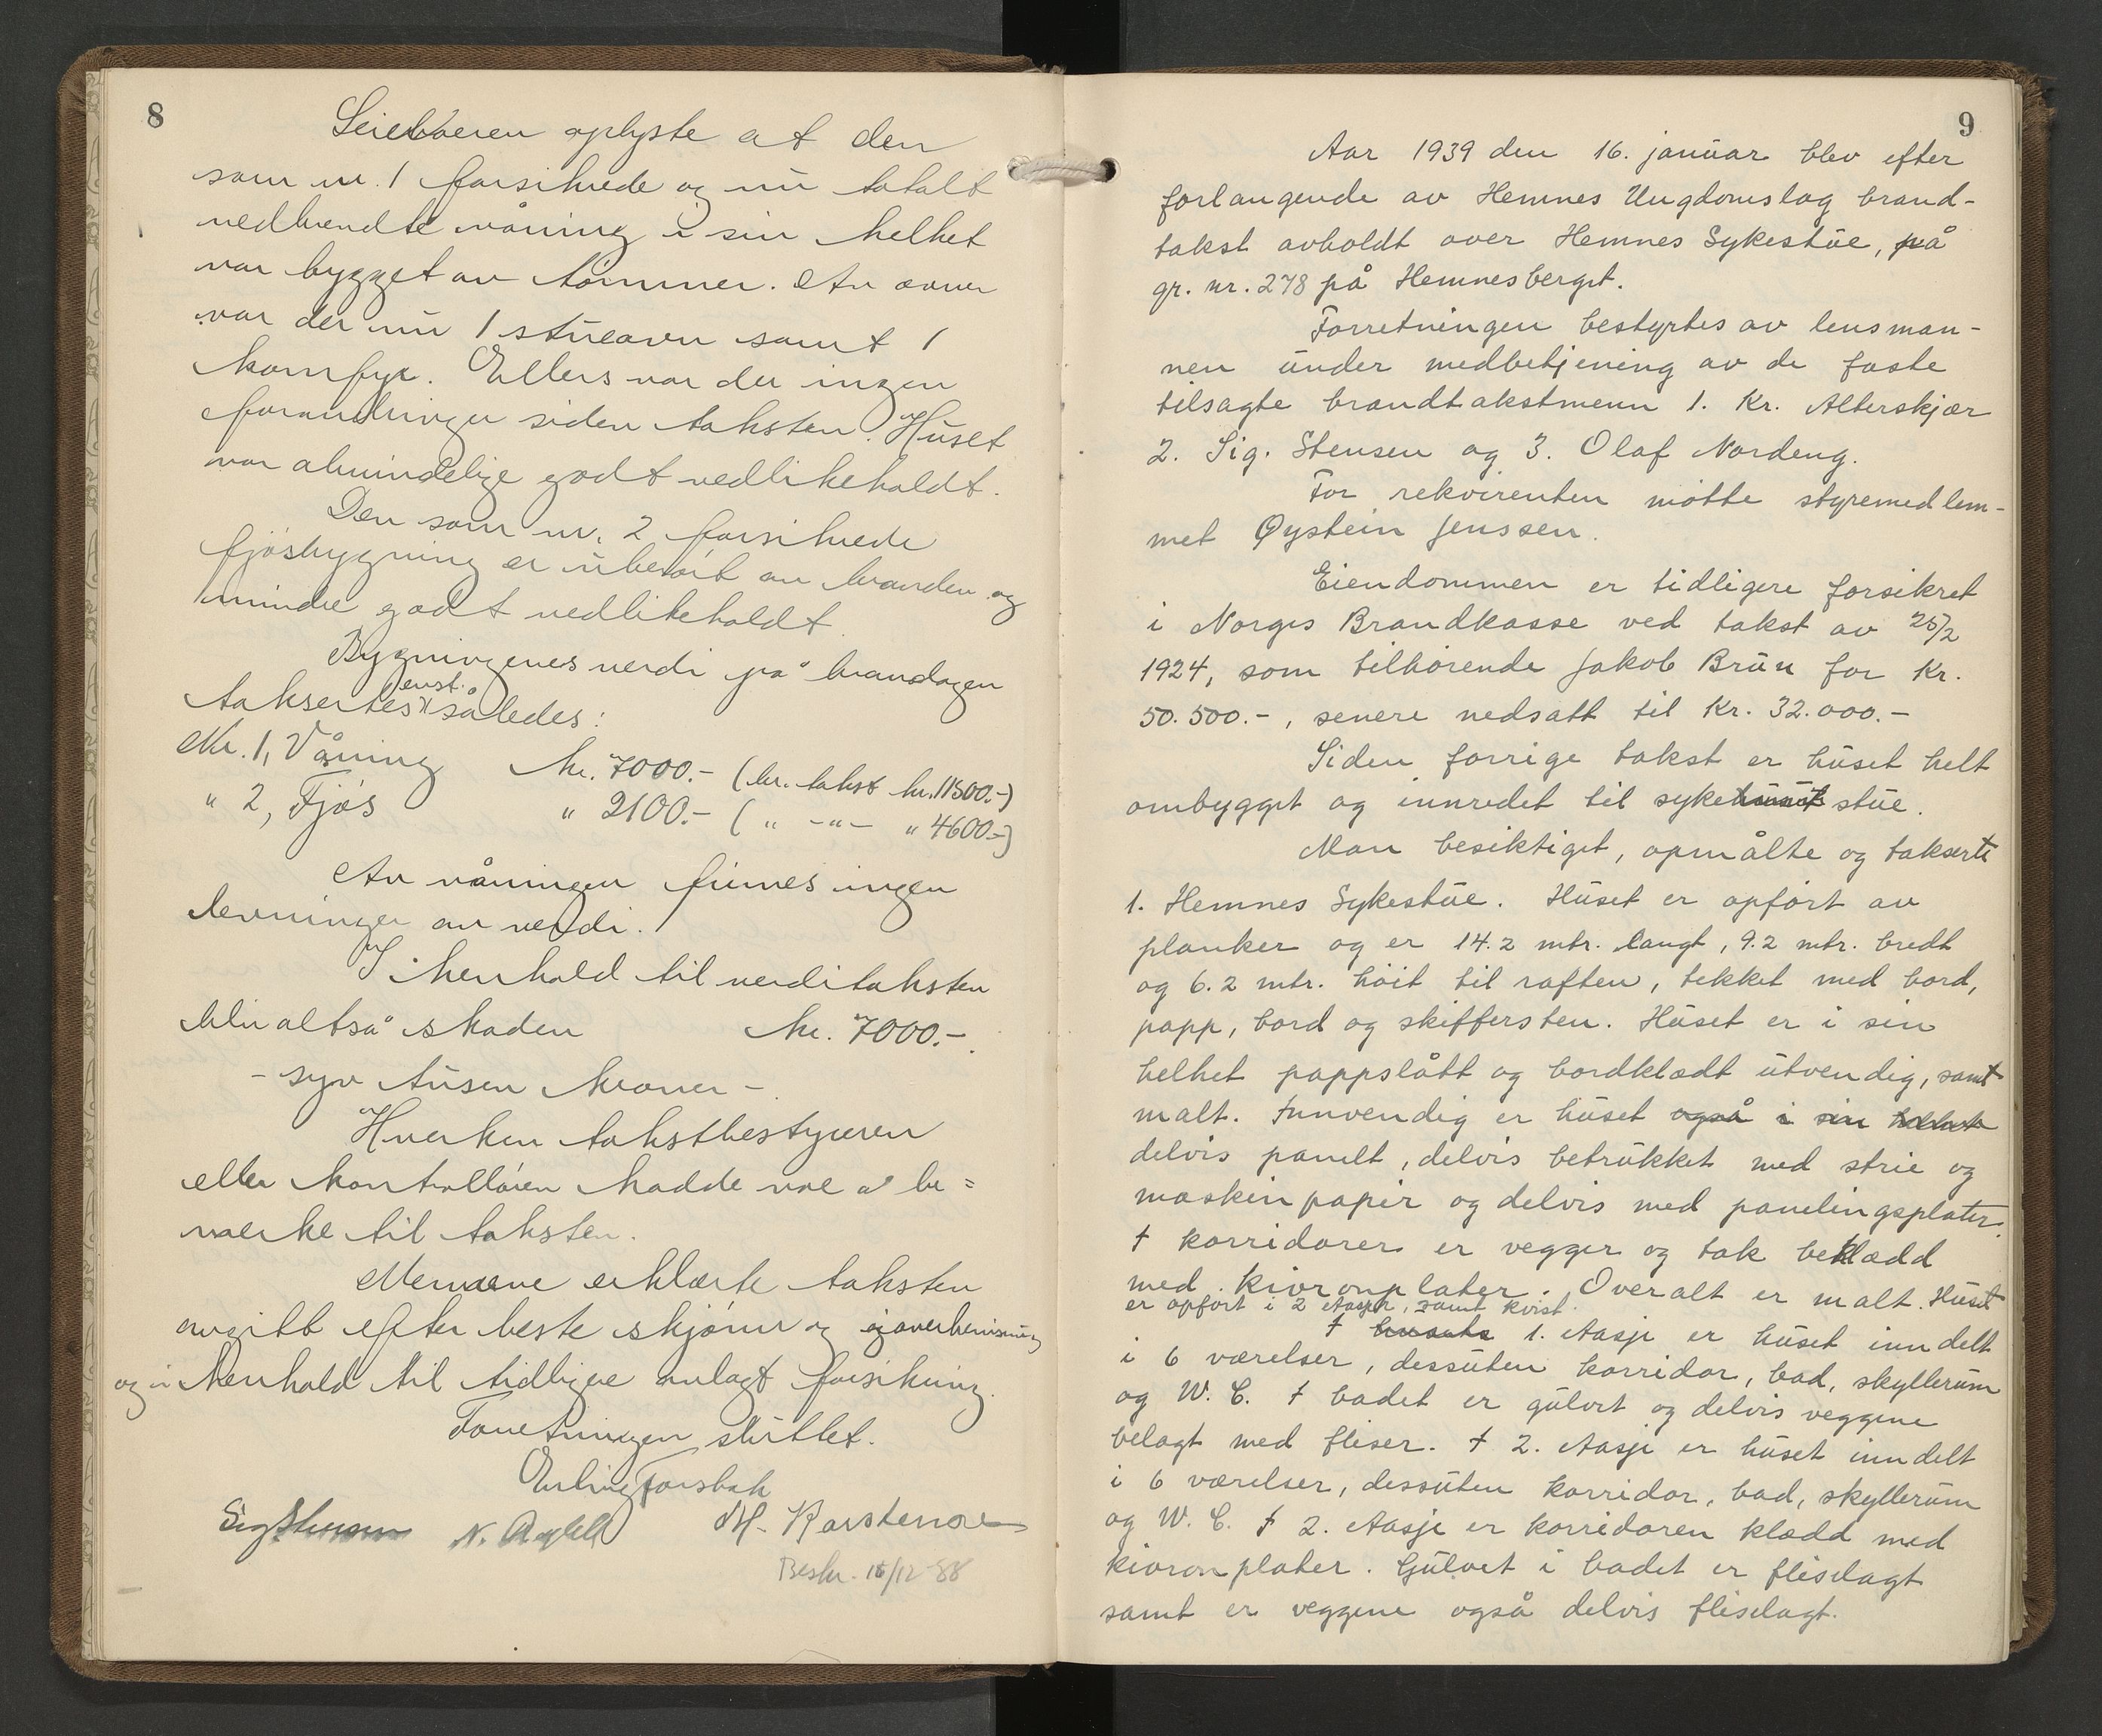 8
Leieboeren oplyste at den
som nr. 1 forsikrede og nu totalt
nedbrendte våning i sin helhet
var bygget av tømmer. Av ovner
var der nu 1 stueovn samt 1
komfyr. Ellers var der ingen
forandringer siden taksten. Huset
var almindelige godt vedlikeholdt.
Den som nr. 2 forsikrede
fjøsbygning er uberørt av branden og
mindre godt vedlikeholdt.
Bygningenes verdi på branddagen
enst.
taksertes således:
Nr. 1, Våning kr. 7000.- (br. takst kr. 11500.-)
" 2, Fjøs " 2100.- ( " -"- " 4600.-)
Av våningen finnes ingen
levninger av verdi.
I henhold til verditaksten
blir altså skaden kr. 7000.-
- syv tusen kroner -
Hverken takstbestyreren
eller kontrolløren hadde noe å be=
merke til taksten.
Mennene erklærte taksten
avgitt efter beste skjønn og overbevisning
og i henhold til tidligere anlagt forsikring.
Forretningen sluttet.
Erling Forsbak
Sig Stensen N. M. Karstensen
Beskr. 15/12-38
9
Aar 1939 den 16. januar blev efter
forlangende av Hemnes Ungdomslag brand-
takst avholdt over Hemnes Sykestue, på
gr. nr. 278 på Hemnesberget.
Forretningen bestyrtes av lensman-
nen under medbetjening av de faste
tilsagte brandtakstmenn 1. Kr. Alterskjær
2. Sig. Stensen og 3. Olaf Nordeng.
For rekvirenten møtte styremedlem-
met Øystein Jenssen.
Eiendommen er tidligere forsikret
i Norges Brandkasse ved takst av 25/2
1924, som tilhørende Jakob Brun for Kr.
50.500.-, senere nedsatt til Kr. 32.000.-
Siden forrige takst er huset helt
ombygget og innredet til sykehuset stue.
Man besiktiget, opmålte og takserte
1. Hemnes Sykestue. Huset er opført av
planker og er 14.2 mtr. langt, 9.2 mtr. bredt
og 6.2 mtr. høit til raften, tekket med bord,
papp, bord og skiffersten. Huset er i sin
helhet pappslått og bordklædt utvendig, samt
malt. Innvendig er huset også i sin helhet
delvis panelt, delvis betrukket med strie og
maskinpapir og delvis med panelingsplater.
I korridorer er vegger og tak beklædd
med kivronplater. Overalt er malt. Huset
er opført i 2 etasjer, samt kvist.
I husets 1. etasje er huset inndelt
i 6 værelser, dessuten korridor, bad, skyllerum
og W. C. I badet er gulvet og delvis veggene
belagt med fliser. I 2. etasje er huset inndelt
i 6 værelser, dessuten korridor, bad, skyllerum
og W. C. I 2. etasje er korridoren klædd med
kivronplater. Gulvet i badet er fliselagt
samt er veggene også delvis fliselagt.